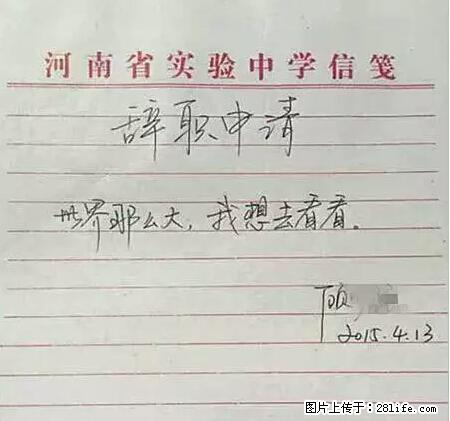 河南省实验中学信笺
辞职申请
世界那么大，我想去看看。
顾
2015.4.13
图片上传于：281life.com